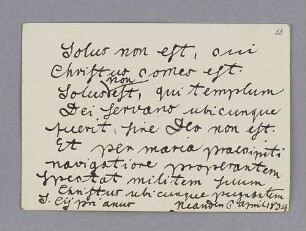 33
Solus non est, cui
Christus comes est.
Solus non est, qui templum
Dei servans ubicunque
fuerit, sine Deo non est.
Et per maria praecipiti
navigatione properantem
spectat militem suum
Christus ubicunque pugnantem
S. Cyprianus Neander 6 April 1834